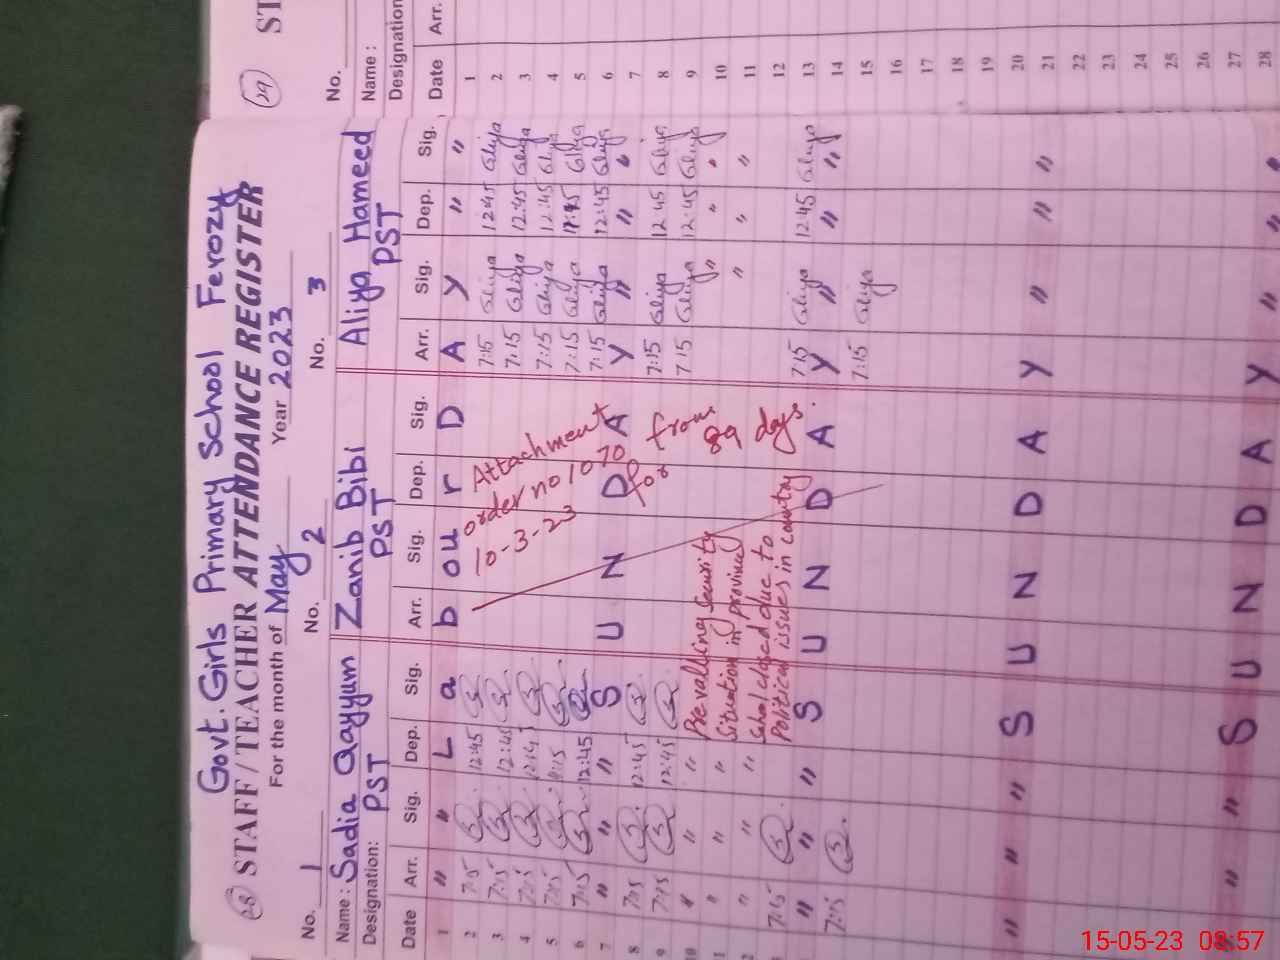 28
Govt. Girls Primary School Ferozy
STAFF / TEACHER ATTENDANCE REGISTER
For the month of May Year 2023
No. 1 No. 2 No. 3
Name: Sadia Qayyum Zanib Bibi Aliya Hameed
Designation: PST PST PST
Date Arr. Sig. Dep. Sig. Arr. Sig. Dep. Sig. Arr. Sig. Dep. Sig.
1 " " L a b o u r D A Y " "
2 7:15 12:45 7:15 Aliya 12:45 Aliya
3 7:15 12:45 7:15 Aliya 12:45 Aliya
4 7:15 12:45 7:15 Aliya 12:45 Aliya
5 7:15 7:15 Aliya 12:45 Aliya
6 7:15 12:45 7:15 Aliya 12:45 Aliya
7 " " " S U N D A Y " " "
8 7:15 12:45 7:15 Aliya 12:45 Aliya
9 7:15 12:45 7:15 Aliya 12:45 Aliya
10 " " " " " "
" " " " " "
" " "
7:15 7:15 Aliya 12:45 Aliya
" " " S U N D A Y " " "
7:15 7:15 Aliya
" " " S U N D A Y " " "
" " " S U N D A Y " " "
Attachment
order no 1070 from
10-3-23 for 89 days.
Prevailling Security
Situation in province
School closed due to
Political issues in country
29
ST
No.
Name:
Designation
Date Arr.
1
2
3
4
5
6
7
8
9
10
11
12
13
14
15
16
17
18
19
20
21
22
23
24
25
26
27
28
15-05-23 08:57